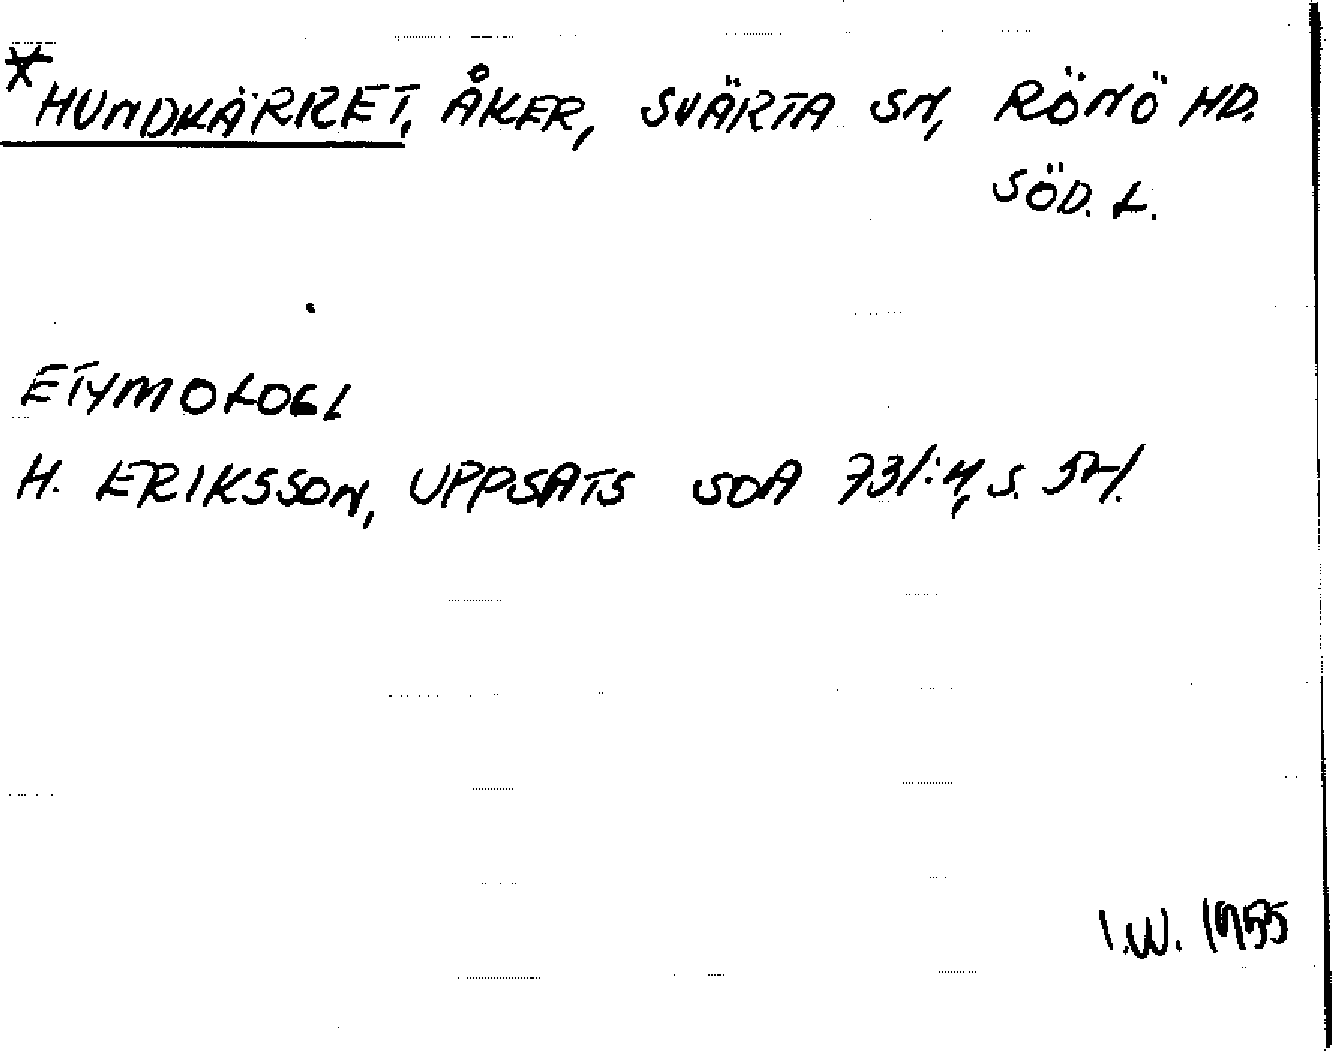 *HUNDKÄRRET, ÅKER, SVÄRTA SN, RÖNÖ HD.
SÖD. L.
ETYMOLOGI
H. ERIKSSON, UPPSATS SOA 731:4, S. 52.
I.W. 1955